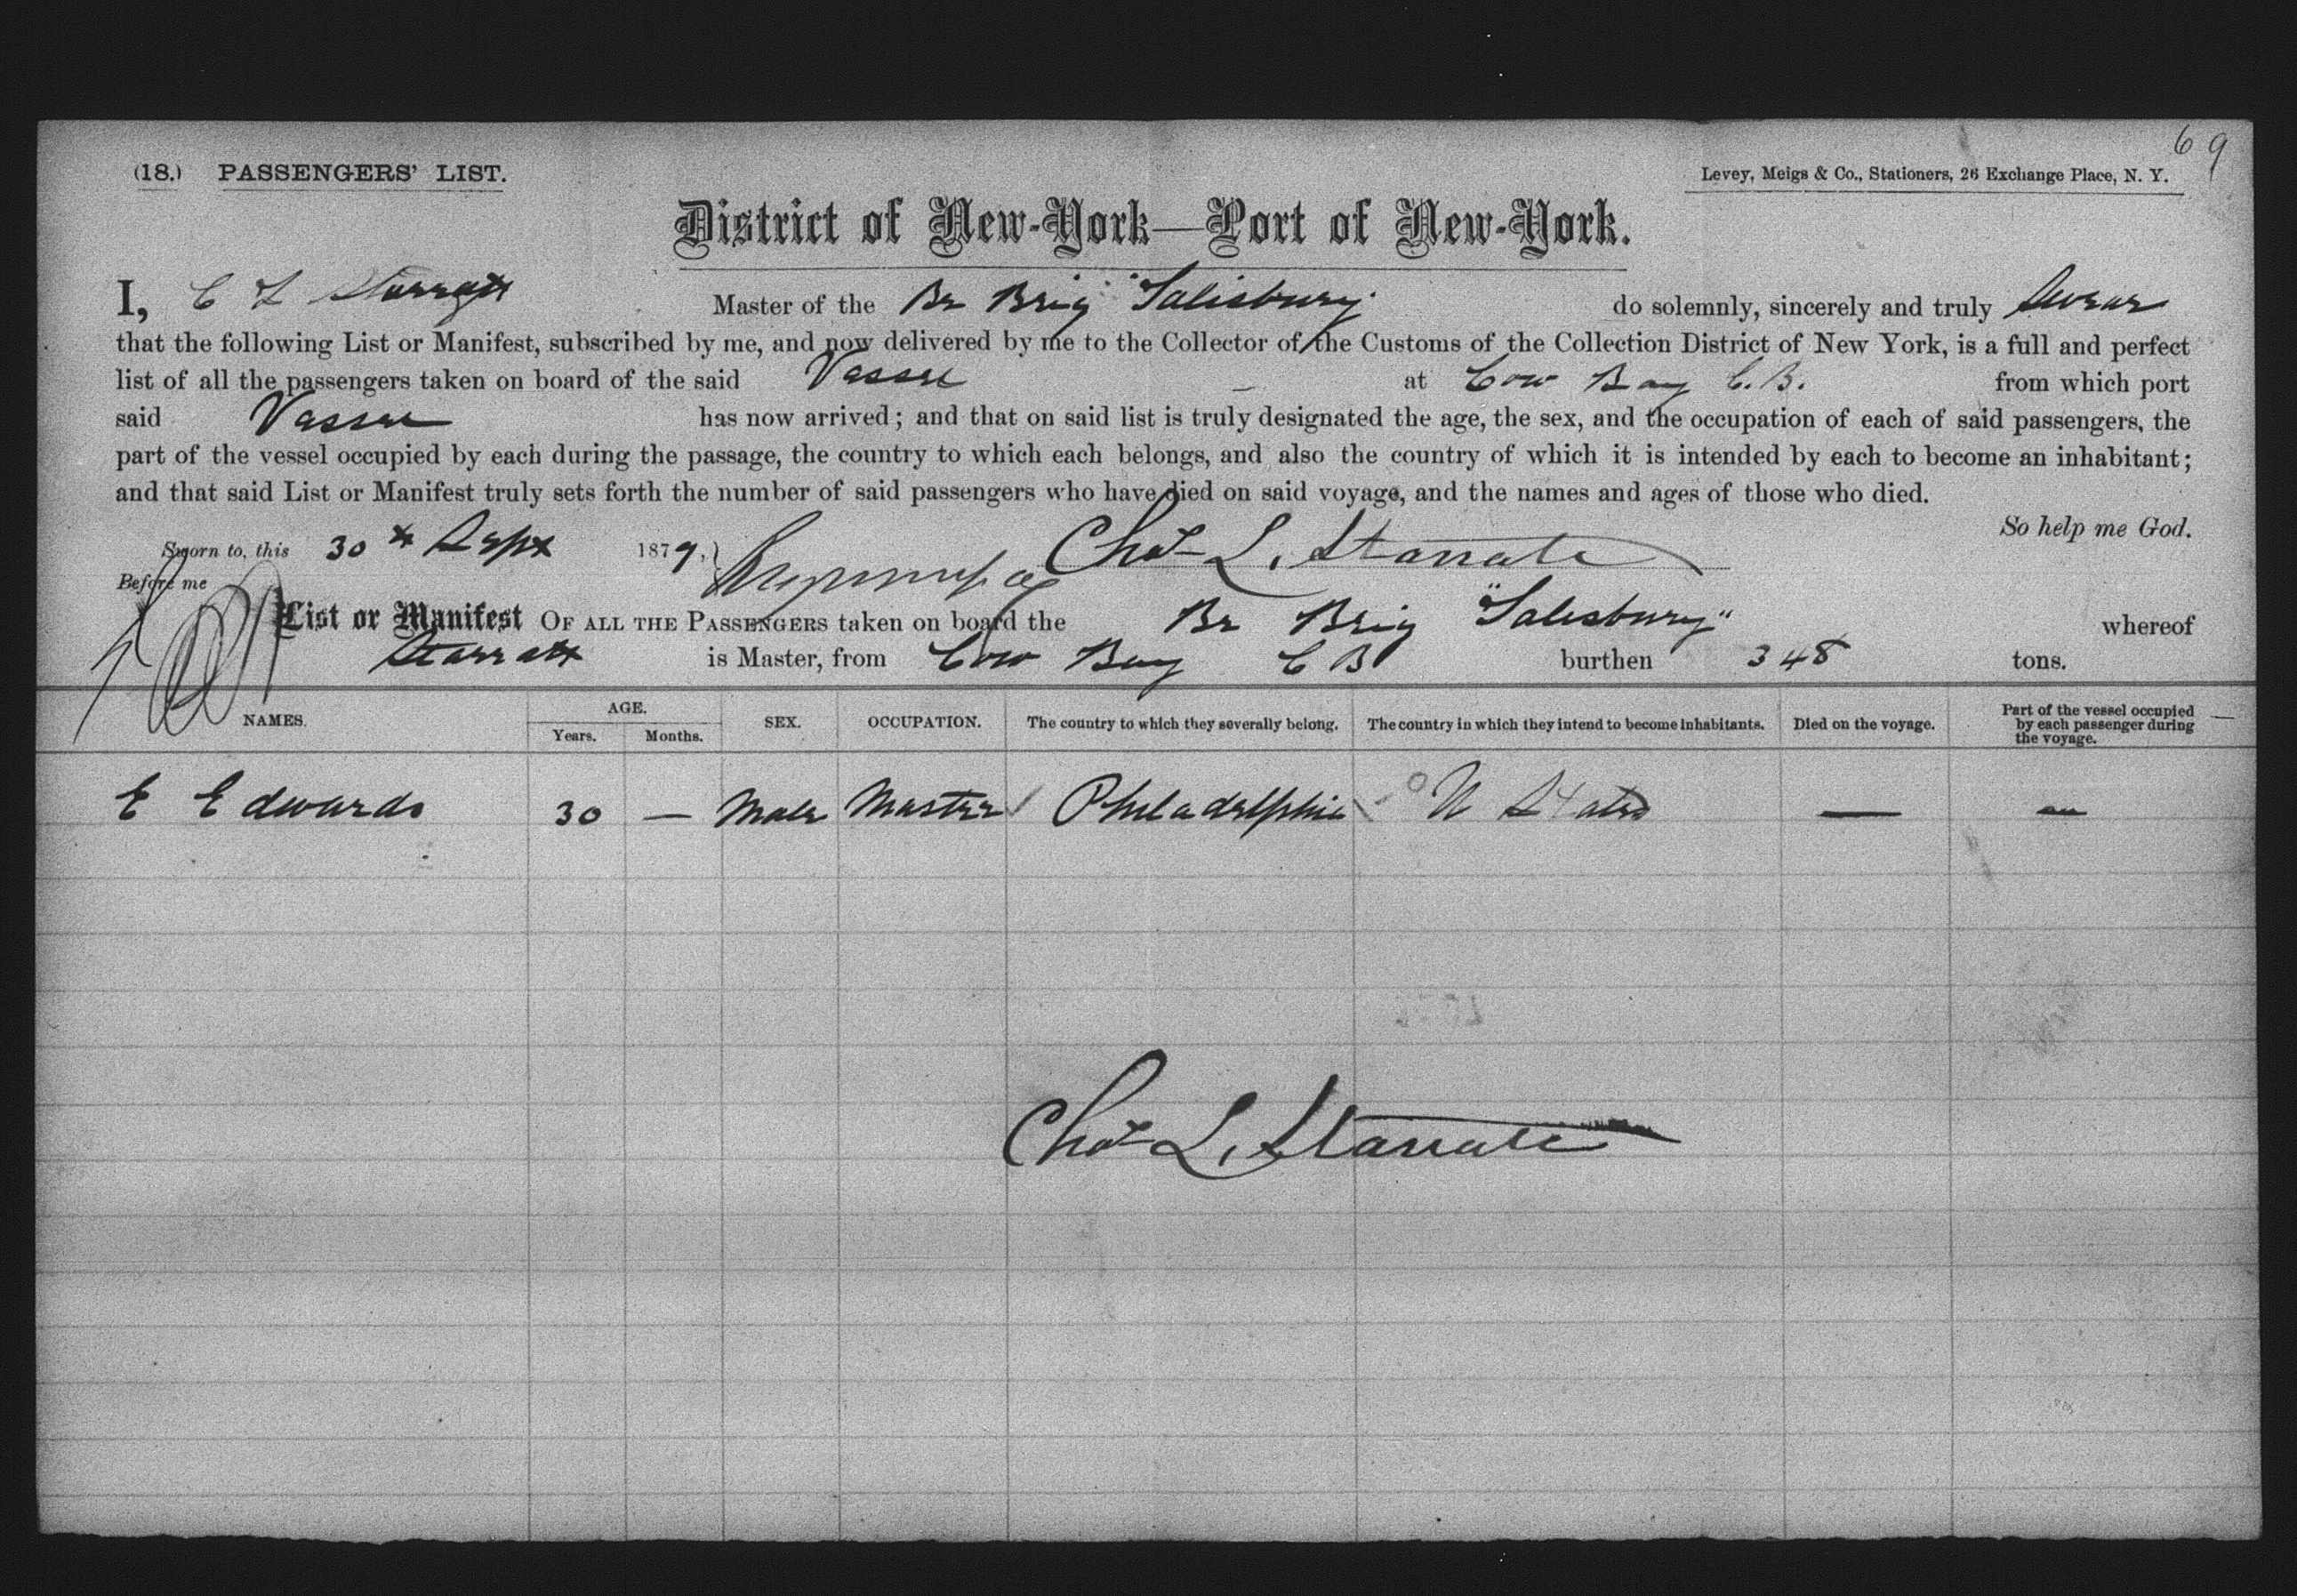 69
(18.) PASSENGERS' LIST.
Levey, Meigs & Co., Stationers, 26 Exchange Place, N. Y.
District of New-York—Port of New-York.
I, C L Starratt Master of the Br Brig "Salisbury" do solemnly, sincerely and truly Swear
that the following List or Manifest, subscribed by me, and now delivered by me to the Collector of the Customs of the Collection District of New York, is a full and perfect
list of all the passengers taken on board of the said Vessel at Cow Bay C.B. from which port
said Vessel has now arrived; and that on said list is truly designated the age, the sex, and the occupation of each of said passengers, the
part of the vessel occupied by each during the passage, the country to which each belongs, and also the country of which it is intended by each to become an inhabitant;
and that said List or Manifest truly sets forth the number of said passengers who have died on said voyage, and the names and ages of those who died.
So help me God.
Sworn to, this 30th Sept 1879, Chas L. Starratt
Before me
List or Manifest OF ALL THE PASSENGERS taken on board the Br Brig "Salisbury" whereof
Starratt is Master, from Cow Bay C B burthen 348 tons.
NAMES. AGE. Years. Months. SEX. OCCUPATION. The country to which they severally belong. The country in which they intend to become inhabitants. Died on the voyage. Part of the vessel occupied by each passenger during the voyage.
E Edwards 30 — Male Master Philadelphia U States — —
Chas L. Starratt